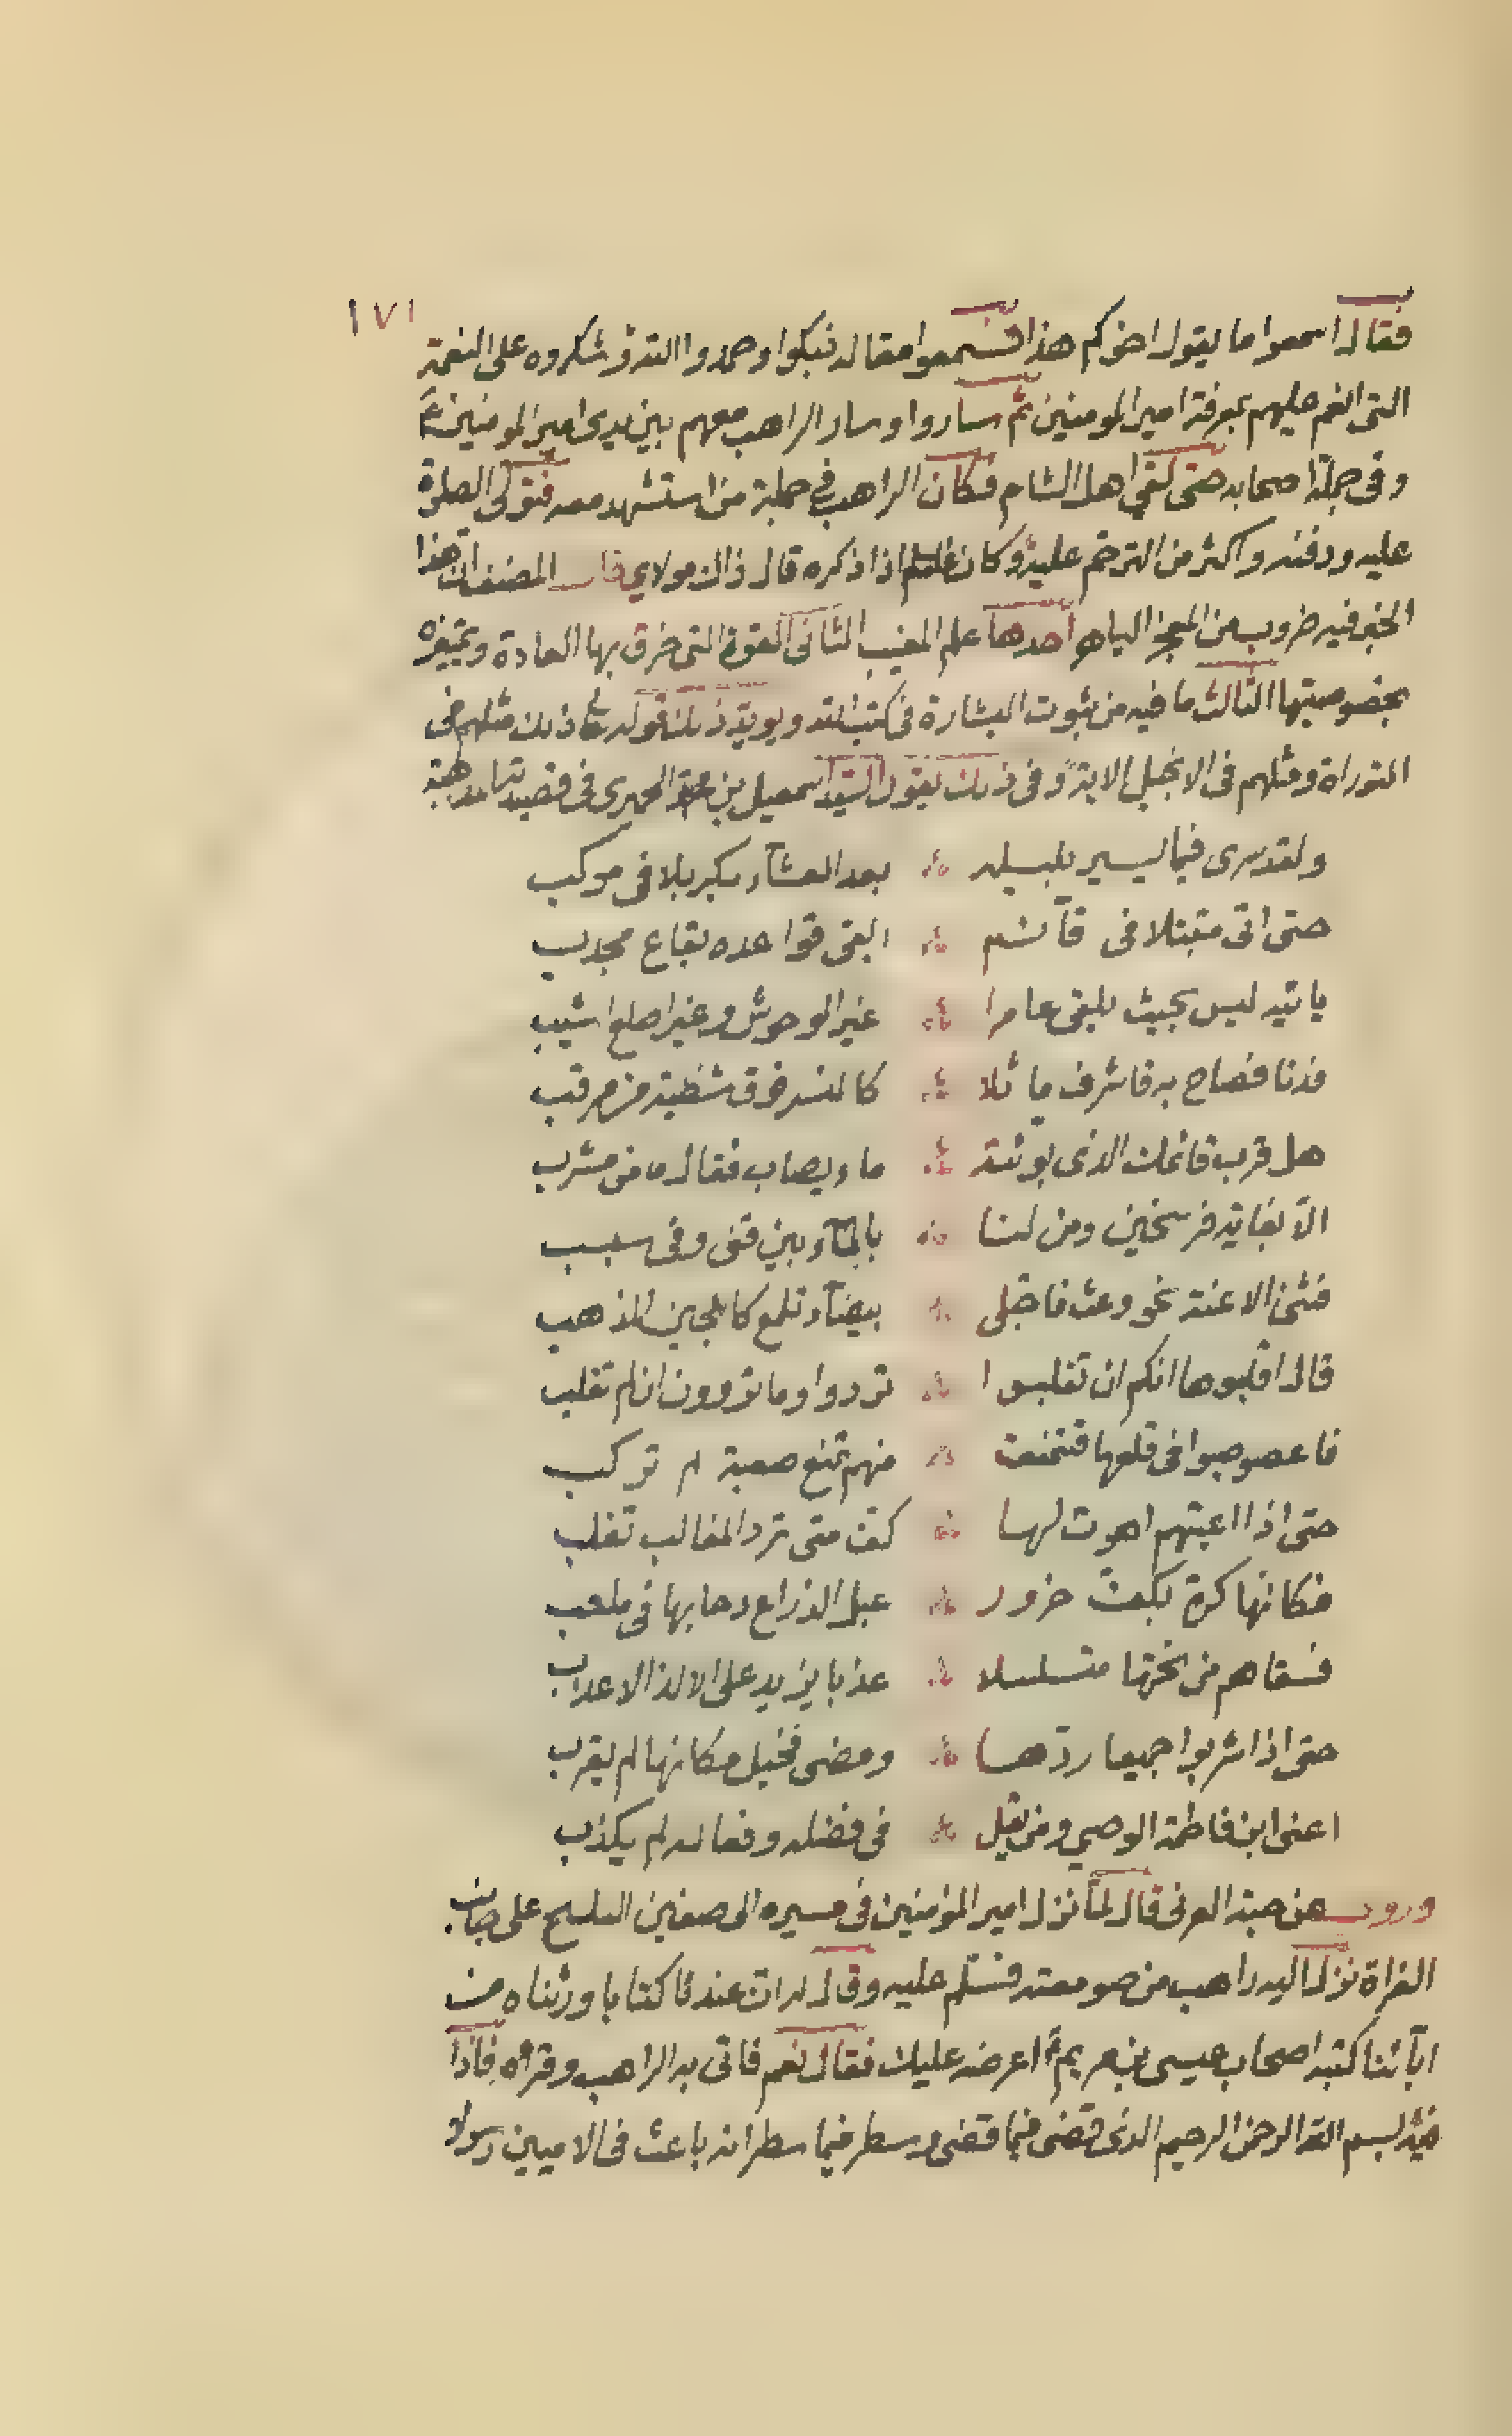 ١٧١
فقال اسمعوا ما يقول اخوكم هذا فسمعوا مقاله فبكوا وحمدوا الله وشكروه على النعمة
التى انعم عليهم بمعرفة امير المومنين ثم ساروا وسار الراهب معهم بين يدى امير المومنين ع
وفى جملة اصحابه حتى لقى اهل الشام فكان الراهب في جملة من استشهد معه فتولى الصلوة
عليه ودفنه واكثر من الترحم عليه وكان اذا ذكره قال ذاك مولاي قال المصنف ان هذا
الخبر فيه ضروب من المعجز الباهر احدها علم المغيب الثانى القوة التى خرق بها العادة وتميزه
بخصوصيتها الثالث ما فيه من ثبوت البشارة فى كتب الله ويويد ذلك قوله تعا ذلك مثلهم فى
التوراة ومثلهم فى الانجيل الاية وفى ذلك يقول السيد اسمعيل بن محمد الحميرى فى قصيدته المذهبة
ولقد سرى فيما يسير بليلة بعد العشآء بكربلا فى موكب
حتى اتى متبتلا فى قآئم القى قواعده بقاع مجدب
ياتيه ليس بحيث يلقى عامرا غير الوحوش وغير اصلع اشيب
فدنا فصاح به فاشرف ماثلا كالنسر فوق شظية من مرقب
هل قرب قائمك الذى بوئته ماء يصاب فقال ما من مشرب
الا بغاية فرسخين ومن لنا بالمآء بين نقى وفى سبسب
فثنى الاعنة نحو وعث فاجتلى بيضآء تلمع كاللجين المذهب
قال اقلبوها انكم ان تقلبوا تردوا وما تروون ان لم تقلب
فاعصوصبوا فى قلعها فتمنعت منهم تمنع صعبة لم تركب
حتى اذا اعيتهم اهوت لها كف متى ترد المغالب تغلب
فكانها كرة بكف حزور عبل الذراع دحا بها فى ملعب
فسقاهم من تحتها متسلسلا عذبا يزيد على الالذ الاعذب
حتى اذا شربوا جميعا ردها ومضى فخيل مكانها لم يقرب
اعنى ابن فاطمة الوصي ومن يقل فى فضله وفعاله لم يكذب
وروى عن حبة العرنى قال لما نزل امير المؤمنين فى مسيره الى صفين البليح على جانب
الفراة نزل اليه راهب من صومعته فسلم عليه وقال له ان عندنا كتابا ورثناه من
ابآئنا كتبه اصحاب عيسى بن مريم ع اعرضه عليك فقال نعم فاتى به الراهب وقرأه فاذا
فيه بسم الله الرحمن الرحيم الذى قضى فيما قضى وسطر فيما سطر انه باعث فى الاميين رسولا